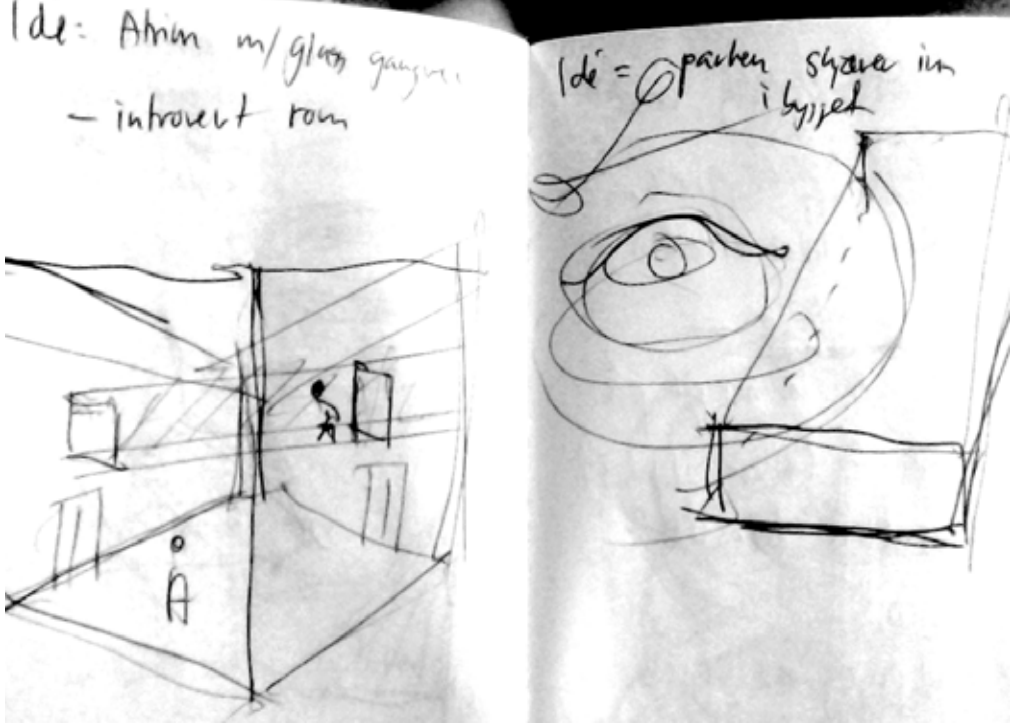 Ide: Atrium m/ glass
– introvert rom
Idé = parken skjærer inn
i bygget